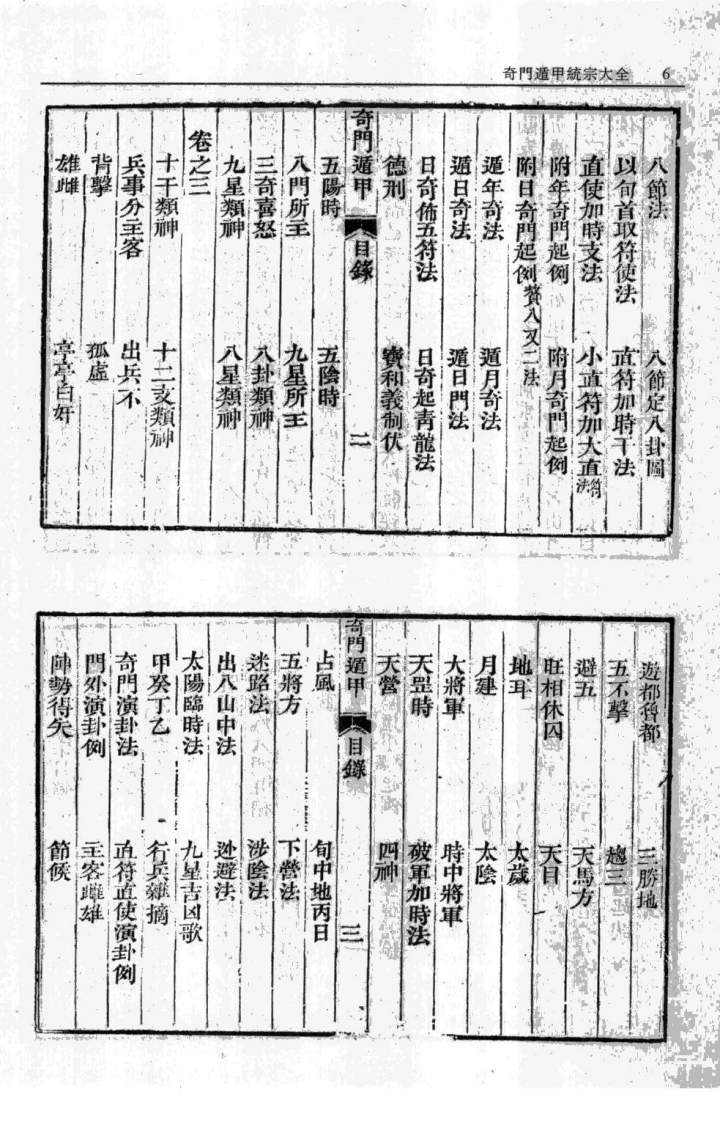 奇門遁甲統宗大全 6
八節法 八節定八卦圖
以旬首取符使法 直符加時干法
直使加時支法 小直符加大直符法
附年奇門起例 附月奇門起例
附日奇門起例贅入又二法
遁年奇法 遁月奇法
遁日奇法 遁日門法
日奇佈五符法 日奇起青龍法
德刑 寶和義制伏
奇門遁甲 目錄 二
五陽時 五陰時
八門所主 九星所主
三奇喜怒 八卦類神
九星類神 八星類神
卷之三
十干類神 十二支類神
兵事分主客 出兵不
背擊 孤虛
雄雌 亭亭白奸
遊都魯都 三勝地
五不擊 趨三
避五 天馬方
旺相休囚 天目
地耳 太歲
月建 太陰
大將軍 時中將軍
天罡時 破軍加時法
天營 四神
奇門遁甲 目錄 三
占風 旬中地丙日
五將方 下營法
迷路法 涉險法
出入山中法 逃避法
太陽臨時法 九星吉凶歌
甲癸丁乙 行兵雜摘
奇門演卦法 直符直使演卦例
門外演卦例 主客雌雄
陣勢得失 節候